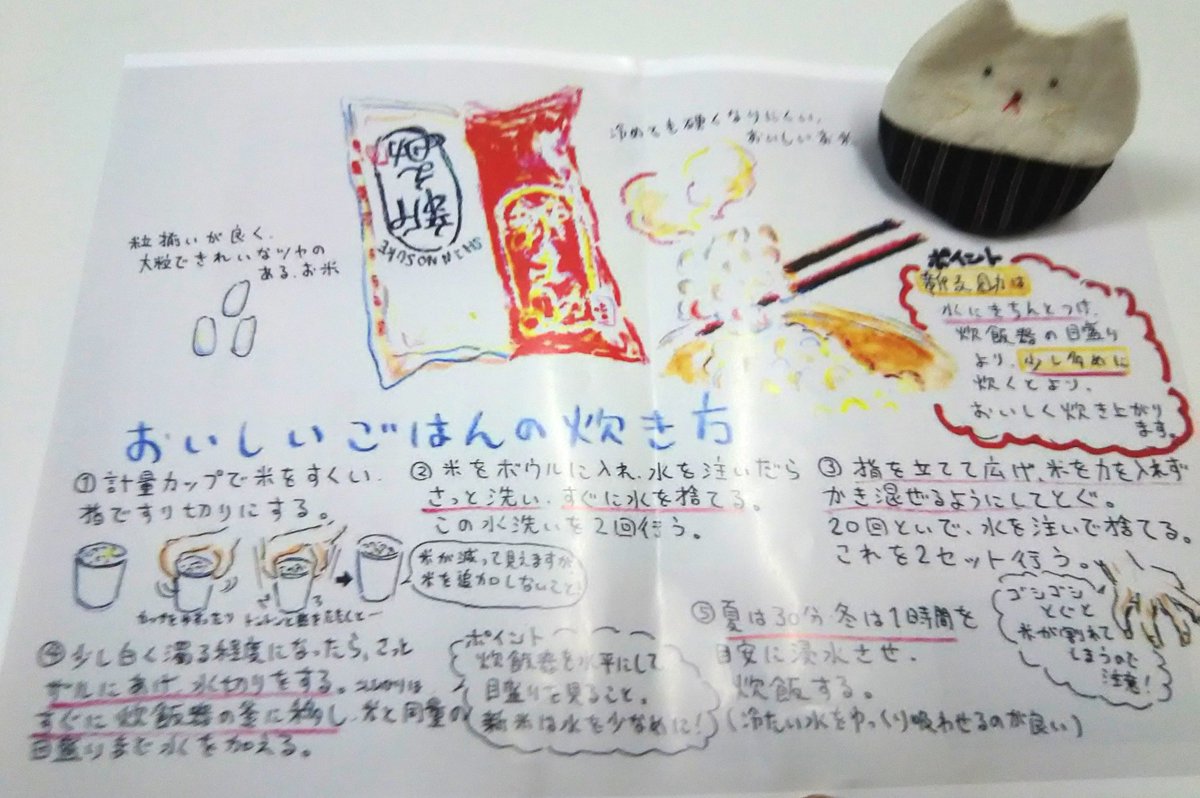 冷めても硬くなりにくい、
おいしいお米
新之助
SHINNOSUKE
粒揃いが良く、
大粒できれいなツヤの
ある、お米
ポイント
新之助は
水にきちんとつけ、
炊飯器の目盛り
より、少し多めに
炊くとより、
おいしく炊き上がり
ます。
おいしいごはんの炊き方
①計量カップで米をすくい、
指ですり切りにする。
米が減って見えますが
米を追加しないこと
②米をボウルに入れ、水を注いだら
さっと洗い、すぐに水を捨てる。
この水洗いを2回行う。
③指を立てて広げ、米を力を入れず
かき混ぜるようにしてとぐ。
20回といで、水を注いで捨てる。
これを2セット行う。
ゴシゴシ
とぐと
米が割れて
しまうので
注意!
④少し白く濁る程度になったら、さっと
ザルにあげ、水切りをする。
すぐに炊飯器の釜に移し、米と同量の
目盛りまで水を加える。
ポイント
炊飯器を水平にして
目盛りを見ること。
新米は水を少なめに!
⑤夏は30分、冬は1時間を
目安に浸水させ、
炊飯する。
(冷たい水をゆっくり吸わせるのが良い)